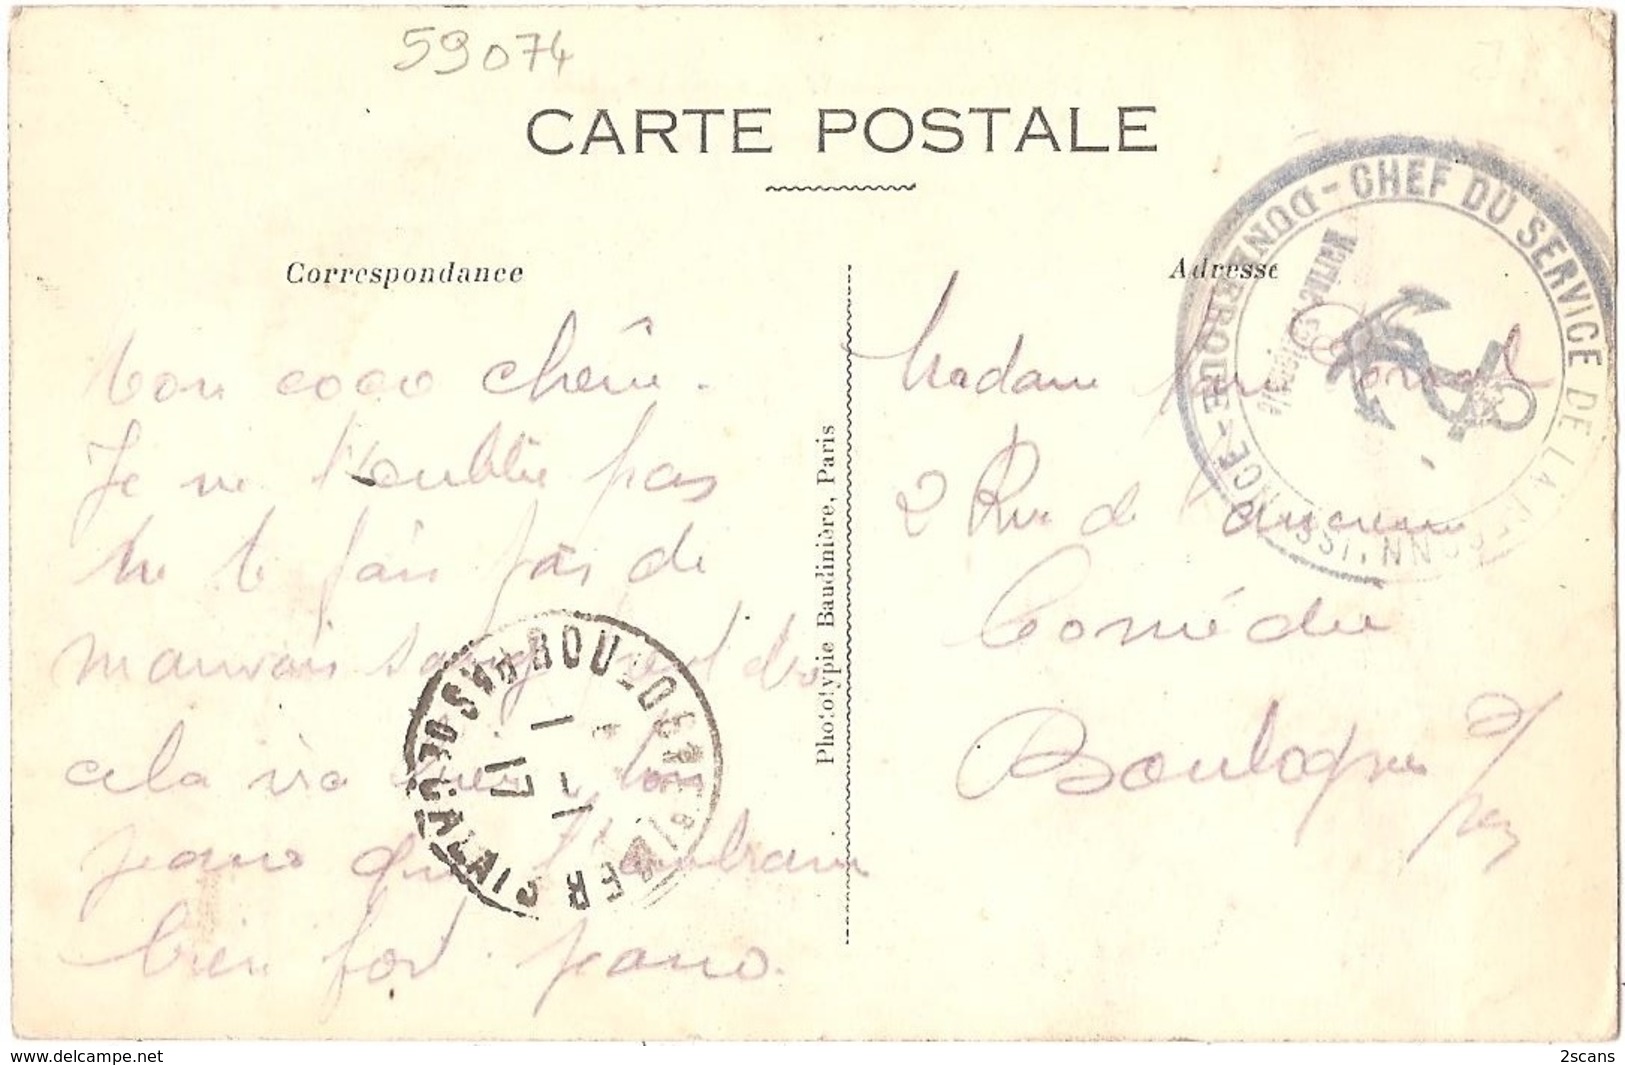 59074
CARTE POSTALE
Correspondance
Adresse
Mon coco chérie.
Je ne t'oublie pas
ne te fais pas de
mauvais sang
cela va bien ton
jeano qui t'embrasse
bien fort. jeano.
Phototypie Baudinière, Paris
Madame
2 Rue de l'ancienne
Comédie
Boulogne s/
mer
CHEF DU SERVICE DE LA
DUNKERQUE
Marine Nationale
BOULOGNE
MER
PAS DE CALAIS
17
1-1
www.delcampe.net
2scans